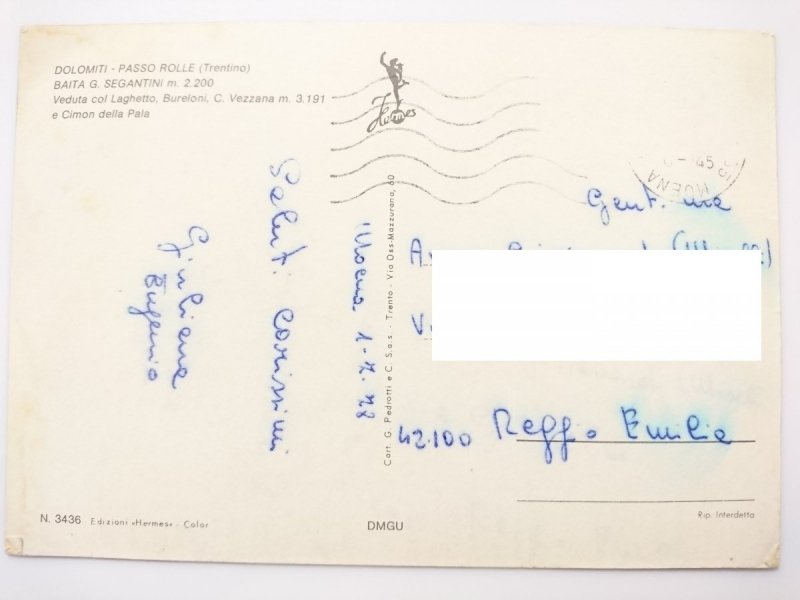 DOLOMITI - PASSO ROLLE (Trentino)
BAITA G. SEGANTINI m. 2.200
Veduta col Laghetto, Bureloni, C. Vezzana m. 3.191
e Cimon della Pala
Hermes
MOENA
Saluti carissimi
Giuliana
Eugenio
Moena 1-7-78
Cart. G. Pedrotti e C. S.a.s. - Trento - Via Oss-Mazzurana, 60
Gent.me
42100 Reggio Emilia
N. 3436 Edizioni «Hermes» - Color
DMGU
Rip. Interdetta